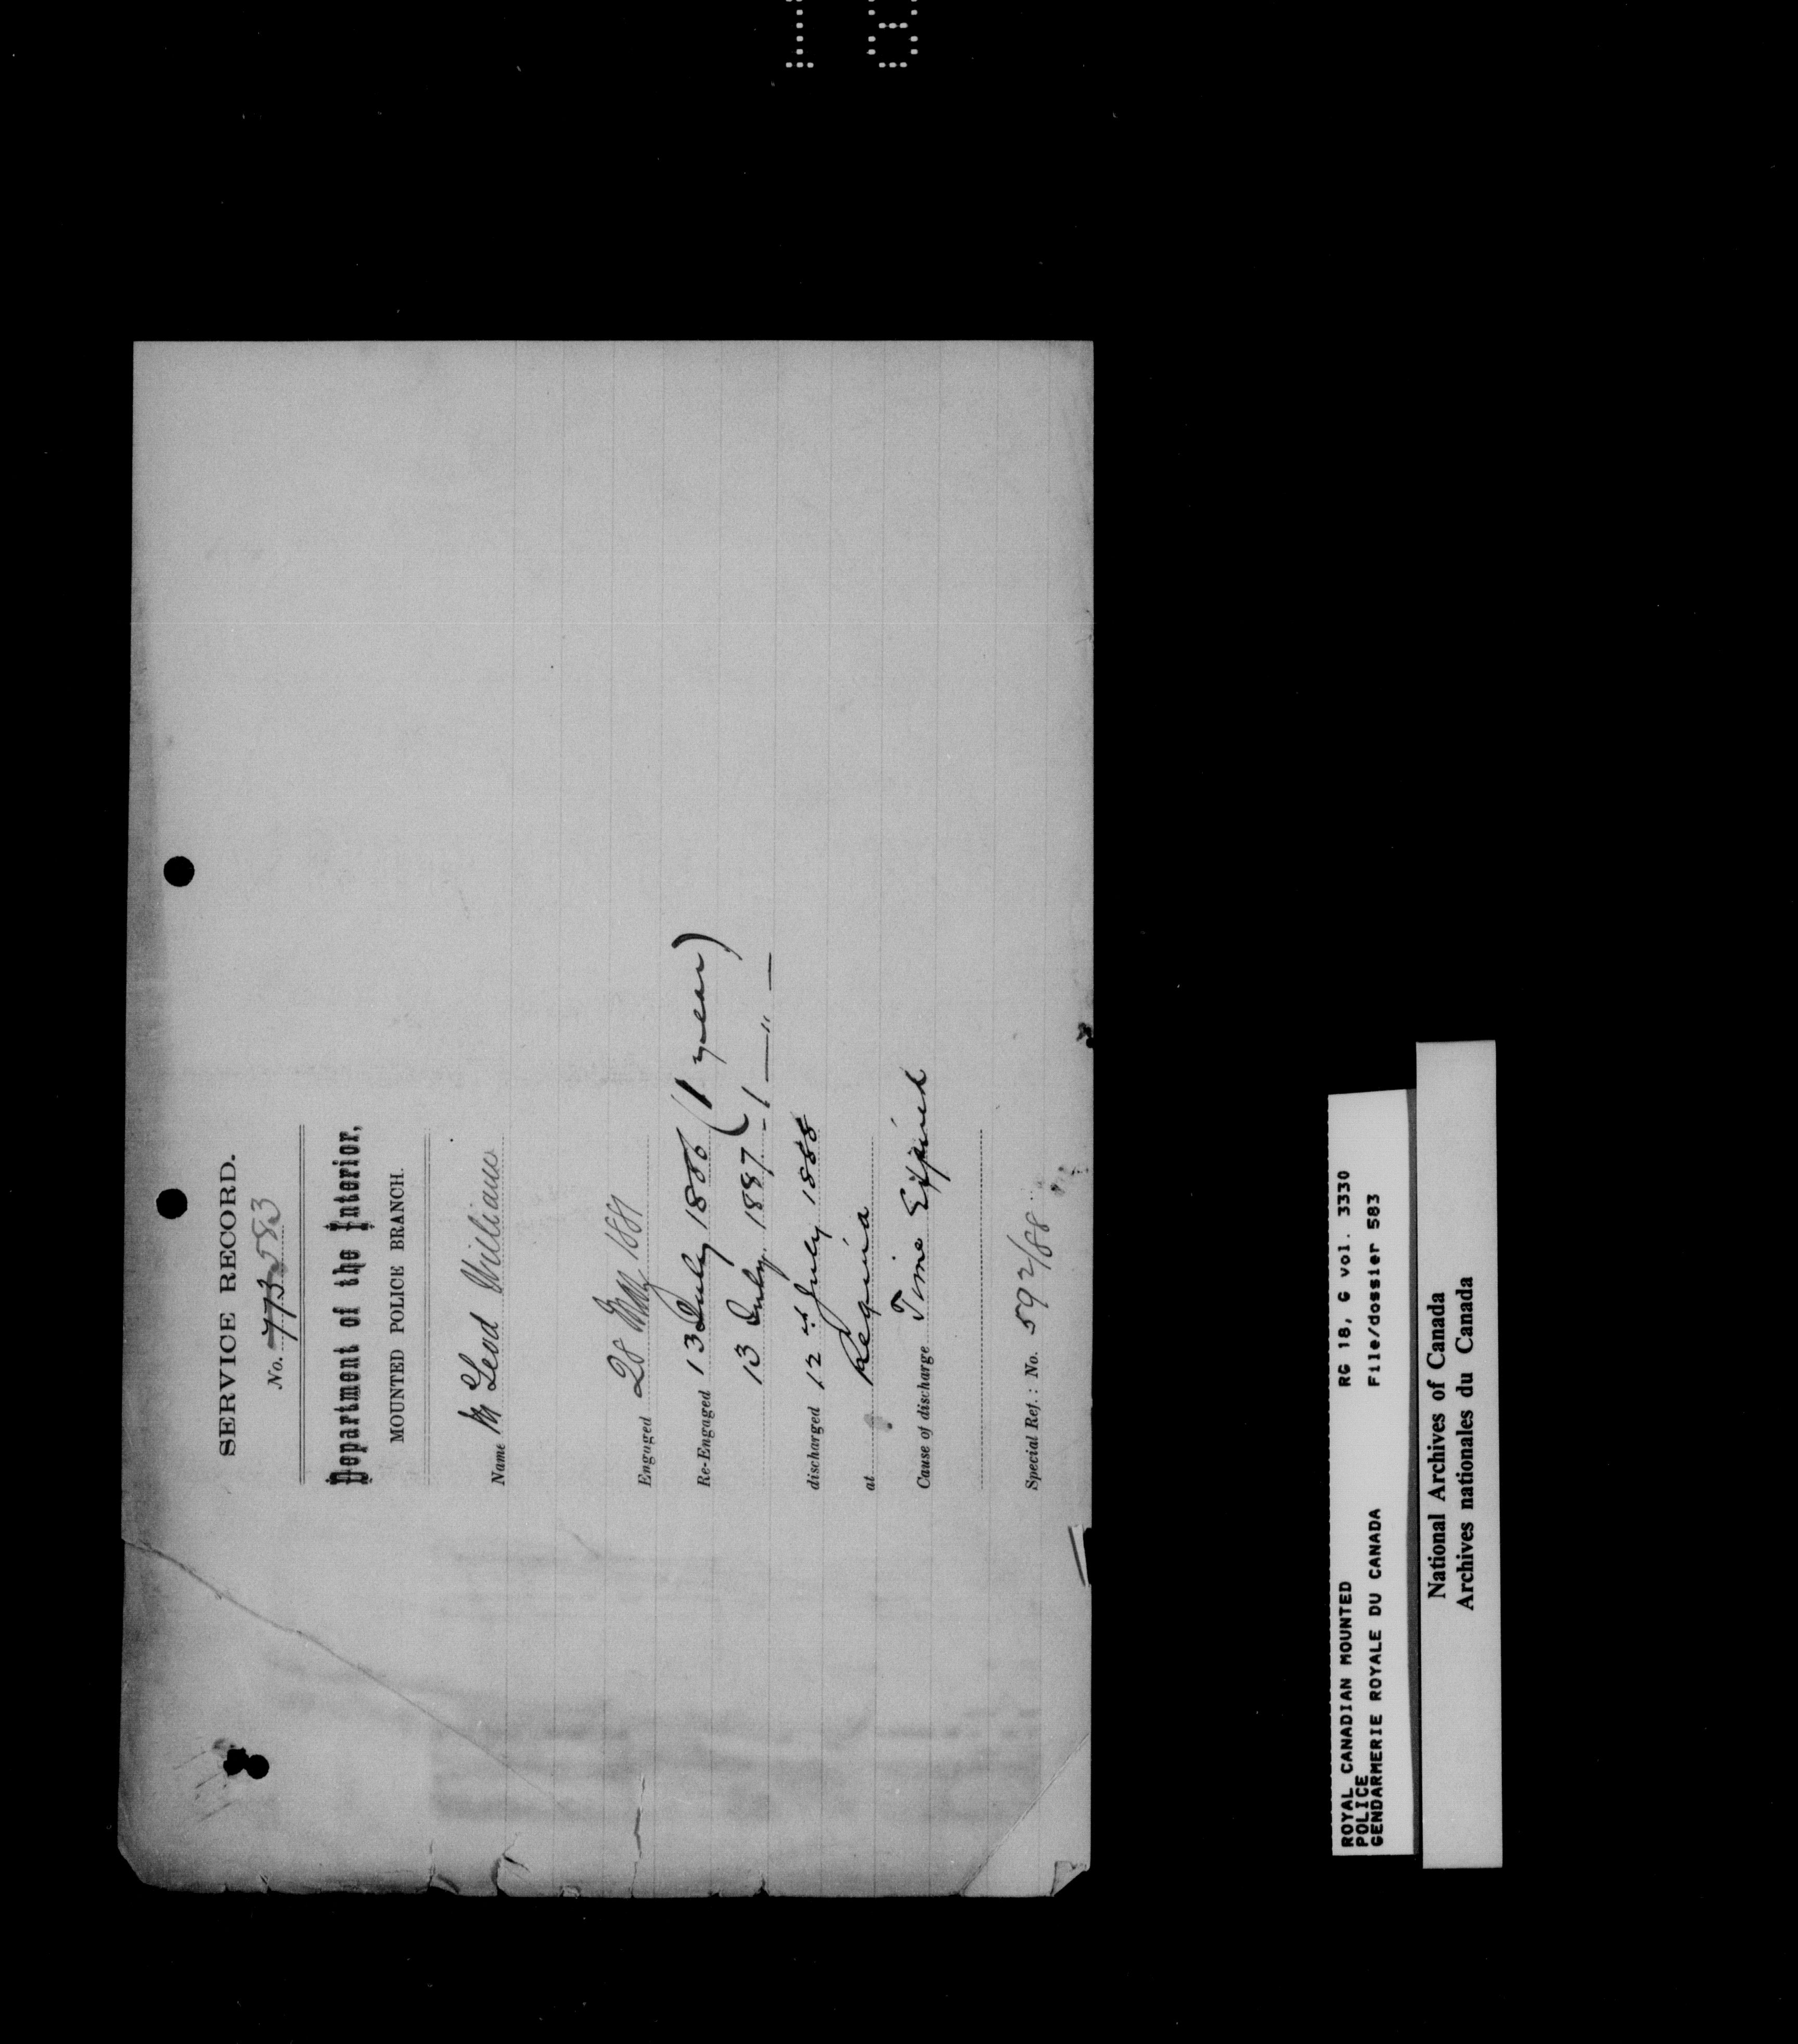 SERVICE RECORD.
No. 773 583
Department of the Interior,
MOUNTED POLICE BRANCH.
Name McLeod William
Engaged 28 May 1881
Re-Engaged 13 July 1886 (1 year)
13 July 1887 (-1 — " —
discharged 12th July 1888
at Regina
Cause of discharge Time Expired
Special Ref.: No. 592/88
ROYAL CANADIAN MOUNTED RG 18, G vol. 3330
POLICE
GENDARMERIE ROYALE DU CANADA File/dossier 583
National Archives of Canada
Archives nationales du Canada